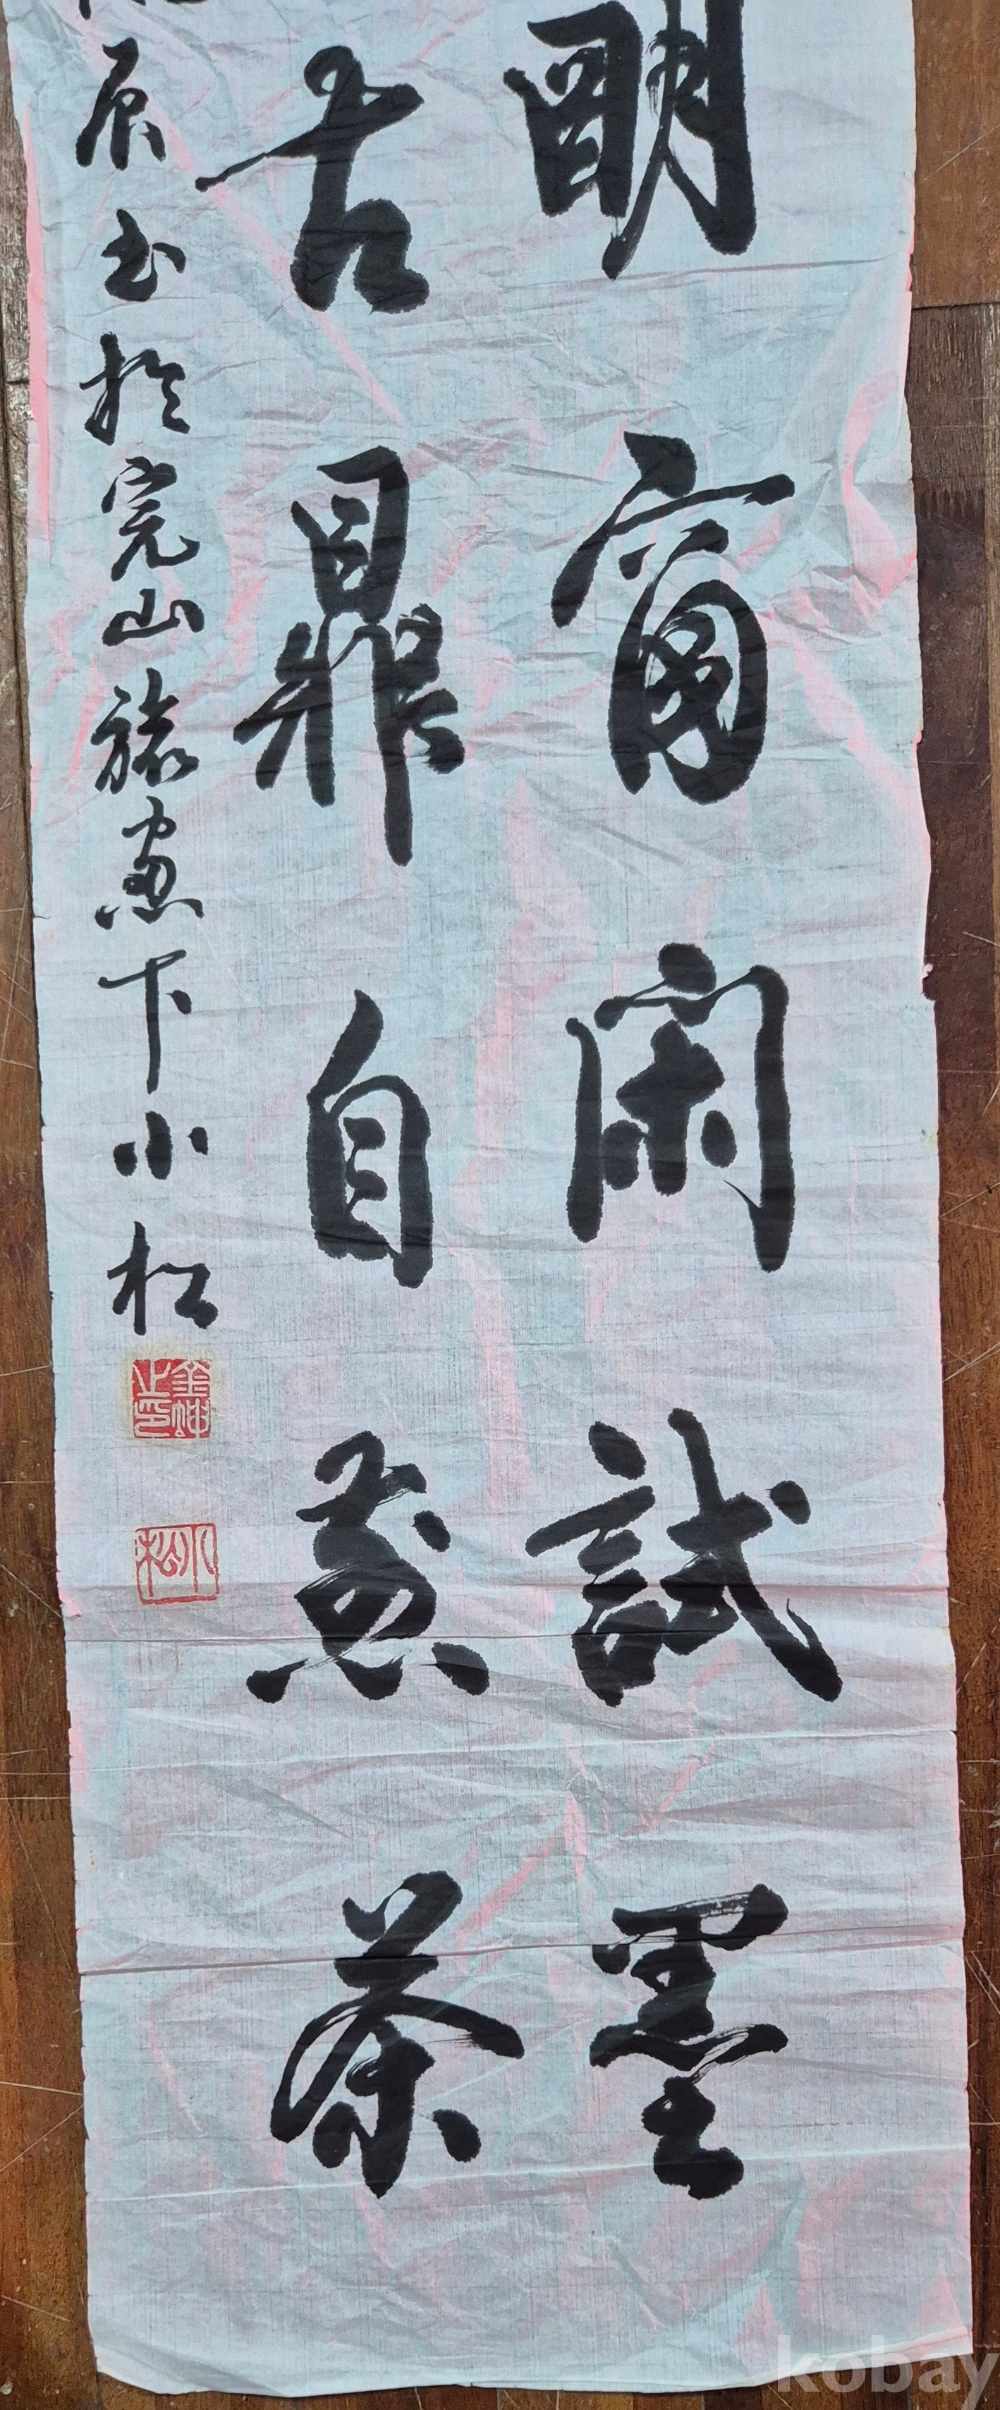 明窗閑試墨
古鼎自煎茶
辰書於完山旅窓下小松
金坤止印
小松
kobay